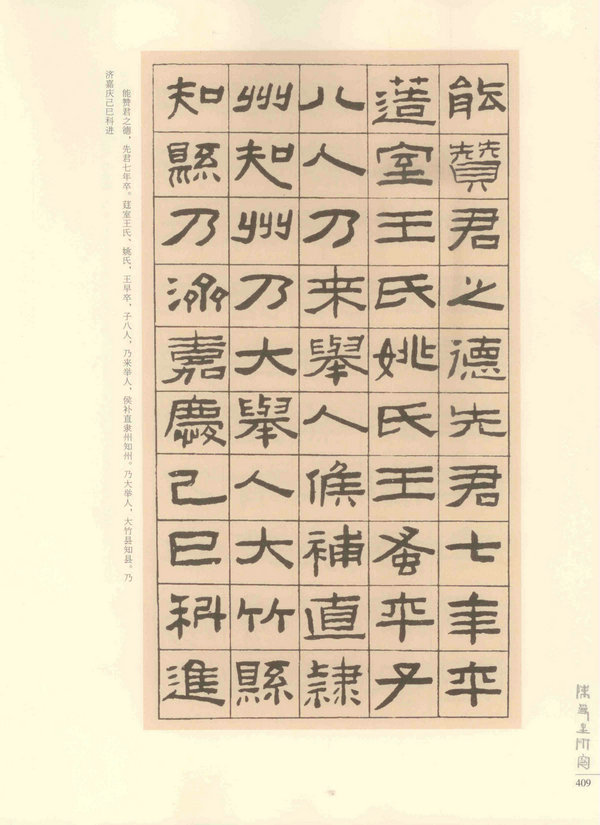 能贊君之德先君七年卒
室王氏姚氏王蚤卒子
八人乃来舉人候補直隷
州知州乃大舉人大竹縣
知縣乃濟嘉慶己巳科進
能赞君之德，先君七年卒。莛室王氏、姚氏，王早卒，子八人，乃来举人，侯补直隶州知州。乃大举人，大竹县知县。乃
济嘉庆己巳科进
409